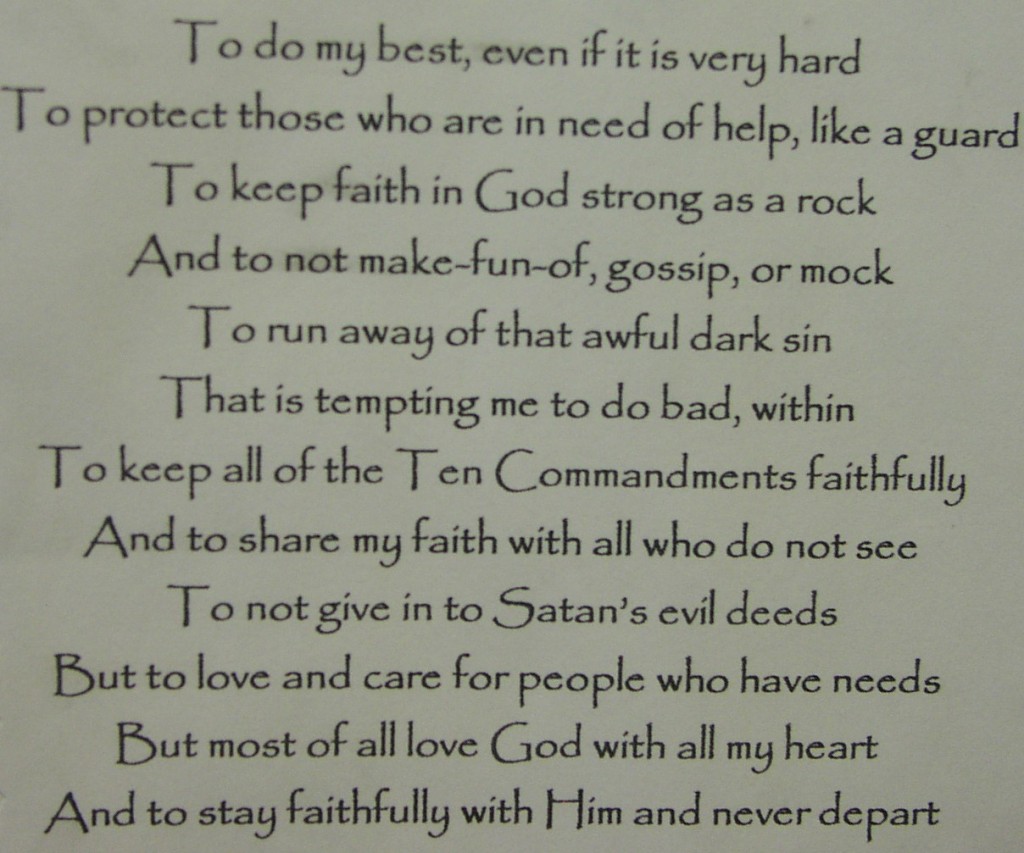 To do my best, even if it is very hard
To protect those who are in need of help, like a guard
To keep faith in God strong as a rock
And to not make-fun-of, gossip, or mock
To run away of that awful dark sin
That is tempting me to do bad, within
To keep all of the Ten Commandments faithfully
And to share my faith with all who do not see
To not give in to Satan's evil deeds
But to love and care for people who have needs
But most of all love God with all my heart
And to stay faithfully with Him and never depart